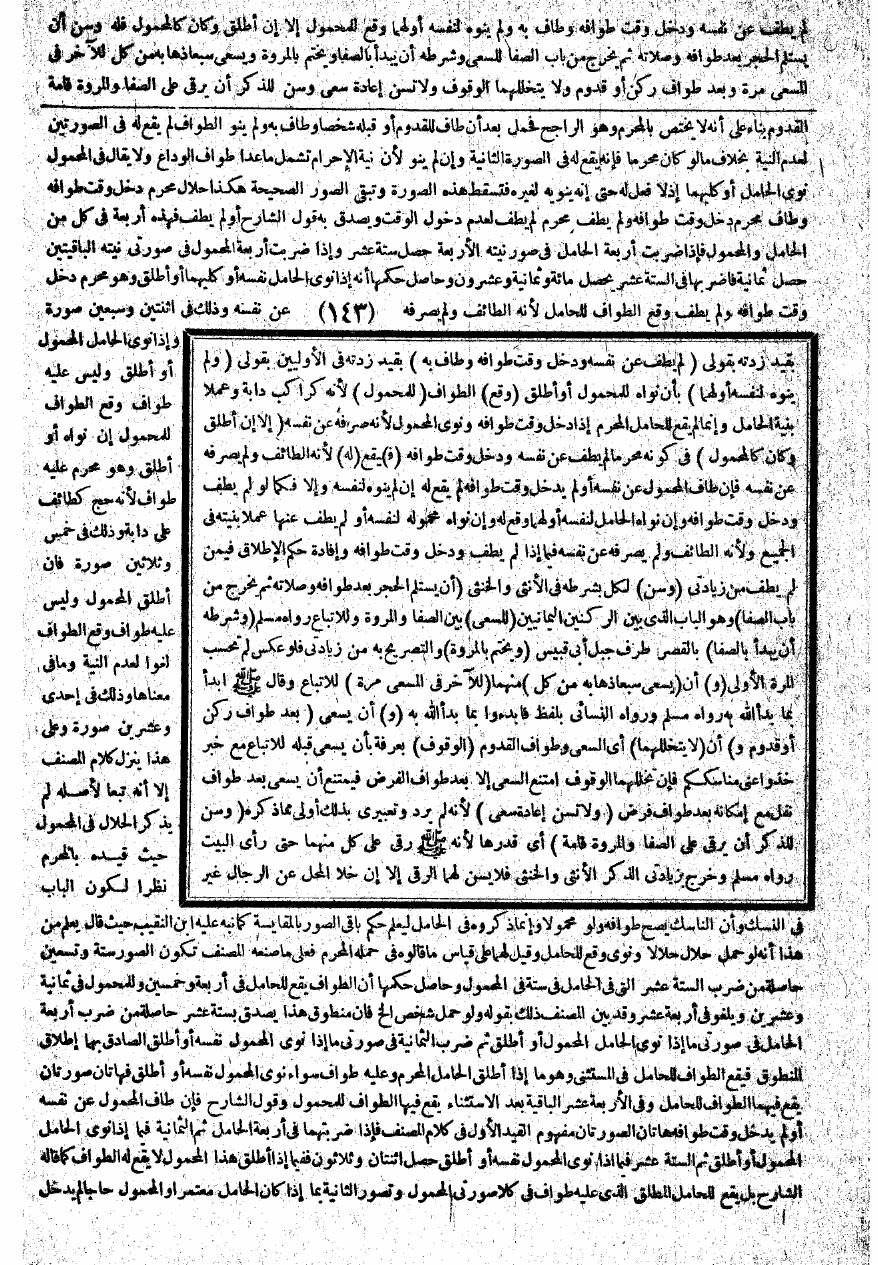 لم يطف عن نفسه ودخل وقت طوافه وطاف به ولم ينوه لنفسه أولهما وقع للمحمول إلا إن أطلق وكان كالمحمول فله وسن أن
يستلم الحجر بعد طوافه وصلاته ثم يخرج من باب الصفا للسعى وشرطه أن يبدأ بالصفا ويختم بالمروة ويسعى سبعا ذهابه من كل للآخر فى
المسعى مرة وبعد طواف ركن أو قدوم ولا يتخللهما الوقوف ولا تسن إعادة سعى وسن للذكر أن يرقى على الصفا والمروة قامة
القدوم بناء على أنه لا يختص بالمحرم وهو الراجح فحمل بعد أن طاف للقدوم أو قبله شخصا وطاف به ولم ينو الطواف لم يقع له فى الصورتين
لعدم النية بخلاف مالو كان محرما فإنه يقع له فى الصورة الثانية وإن لم ينو لأن نية الإحرام تشمل ماعدا طواف الوداع ولا يقال فى المحمول
نوى الحامل أو كليهما إذ لا فعل له حتى إنه ينويه لغيره فتسقط هذه الصورة وتبقى الصور الصحيحة هكذا حلال محرم دخل وقت طوافه
وطاف محرم دخل وقت طوافه ولم يطف محرم لم يطف لعدم دخول الوقت ويصدق به قول الشارح أو لم يطف فهذه أربعة فى كل من
الحامل والمحمول فإذا ضربت أربعة الحامل فى صور نيته الأربعة حصل ستة عشر وإذا ضربت أربعة المحمول فى صورتى نيته الباقيتين
حصل ثمانية فاضربها فى الستة عشر يحصل مائة وثمانية وعشرون وحاصل حكمها أنه إذا نوى الحامل نفسه أو كليهما أو أطلق وهو محرم دخل
وقت طوافه ولم يطف وقع الطواف للحامل لأنه الطائف ولم يصرفه (١٤٣) عن نفسه وذلك فى اثنتين وسبعين صورة
وإذا نوى الحامل المحمول
أو أطلق وليس عليه
طواف وقع الطواف
للمحمول إن نواه أو
أطلق وهو محرم عليه
طواف لأنه حج كطائف
على دابة وذلك فى خمس
وثلاثين صورة فان
أطلق المحمول وليس
عليه طواف وقع الطواف
لغوا لعدم النية وما فى
معناها وذلك فى إحدى
وعشرين صورة وعلى
هذا ينزل كلام المصنف
إلا أنه تبعا لأصله لم
يذكر الحلال فى المحمول
حيث قيده بالمحرم
نظرا لكون الباب
بقيد زدته بقولى ( لم يطف عن نفسه ودخل وقت طوافه وطاف به ) بقيد زدته فى الأوليين بقولى ( ولم
ينوه لنفسه أولهما ) بأن نواه للمحمول أو أطلق (وقع) الطواف ( للمحمول ) لأنه كراكب دابة وعملا
بنية الحامل وإنما لم يقع للحامل المحرم إذا دخل وقت طوافه ونوى المحمول لأنه صرفه عن نفسه ( إلا إن أطلق
وكان كالمحمول ) فى كونه محرما لم يطف عن نفسه ودخل وقت طوافه (ف) يقع (له) لأنه الطائف ولم يصرفه
عن نفسه فإن طاف المحمول عن نفسه أو لم يدخل وقت طوافه لم يقع له إن لم ينوه لنفسه وإلا فكما لو لم يطف
ودخل وقت طوافه وإن نواه الحامل لنفسه أولهما وقع له وإن نواه محموله لنفسه أو لم يطف عنها عملا بنيته فى
الجميع ولأنه الطائف ولم يصرفه عن نفسه فيما إذا لم يطف ودخل وقت طوافه وإفادة حكم الإطلاق فيمن
لم يطف من زيادتى (وسن) لكل بشرطه فى الأنثى والخنثى (أن يستلم الحجر بعد طوافه وصلاته ثم يخرج من
باب الصفا) وهو الباب الذى بين الركنين اليمانيين (للسعى) بين الصفا والمروة وللاتباع رواه مسلم (وشرطه
أن يبدأ بالصفا) بالقصر طرف جبل أبى قبيس (ويختم بالمروة) والتصريح به من زيادتى فلو عكس لم تحسب
المرة الأولى (و) أن (يسعى سبعا ذهابه من كل ) منهما (للآخر فى المسعى مرة ) للاتباع وقال ﷺ ابدأ
بما بدأ الله به رواه مسلم ورواه النسائى بلفظ فابدءوا بما بدأ الله به (و) أن يسعى ( بعد طواف ركن
أو قدوم و) أن (لا يتخللهما) أى السعى وطواف القدوم (الوقوف) بعرفة بأن يسعى قبله للاتباع مع خبر
خذوا عنى مناسككم فإن تخللهما الوقوف امتنع السعى إلا بعد طواف الفرض فيمتنع أن يسعى بعد طواف
نفل مع إمكانه بعد طواف فرض ( ولا تسن إعادة سعى ) لأنه لم يرد وتعبيرى بذلك أولى مما ذكره ( وسن
للذكر أن يرقى على الصفا والمروة قامة ) أى قدرها لأنه ﷺ رقى على كل منهما حتى رأى البيت
رواه مسلم وخرج بزيادتى الذكر الأنثى والخنثى فلا يسن لهما الرقى إلا إن خلا المحل عن الرجال غير
فى النسك وأن الناسك يصح طوافه ولو محمولا وإنما ذكروه فى الحامل ليعلم حكم باقى الصور بالمقايسة كما نبه عليه ابن النقيب حيث قال يعلم من
هذا أنه لو حمل حلال حلالا ونوى وقع للحامل وقيل لهما على قياس ما قالوه فى حمله المحرم فعلى ما صنعه المصنف تكون الصور ستة وتسعين
حاصلة من ضرب الستة عشر التى فى الحامل فى ستة فى المحمول وحاصل حكمها أن الطواف يقع للحامل فى أربعة وخمسين وللمحمول فى ثمانية
وعشرين ويلغو فى أربعة عشر وقد بين المصنف ذلك بقوله ولو حمل شخص الخ فان منطوق هذا يصدق بستة عشر حاصلة من ضرب أربعة
الحامل فى صورتى ما إذا نوى الحامل المحمول أو أطلق ثم ضرب الثمانية فى صورتى ما إذا نوى المحمول نفسه أو أطلق الصادق بهما إطلاق
المنطوق فيقع الطواف للحامل فى المستثنى وهو ما إذا أطلق الحامل المحرم وعليه طواف سواء نوى المحمول نفسه أو أطلق فهاتان صورتان
يقع فيهما الطواف للحامل وفى الأربعة عشر الباقية بعد الاستثناء يقع فيها الطواف للمحمول وقول الشارح فإن طاف المحمول عن نفسه
أو لم يدخل وقت طوافه هاتان الصورتان مفهوم القيد الأول فى كلام المصنف فإذا ضربتهما فى أربعة الحامل ثم الثمانية فيما إذا نوى الحامل
المحمول أو أطلق ثم الستة عشر فيما إذا نوى المحمول نفسه أو أطلق حصل اثنتان وثلاثون ففيما إذا أطلق هذا المحمول لا يقع له الطواف كما قاله
الشارح بل يقع للحامل المطلق الذى عليه طواف فى كلا صورتى المحمول وتصور الثانية بما إذا كان الحامل معتمرا والمحمول حاجا لم يدخل